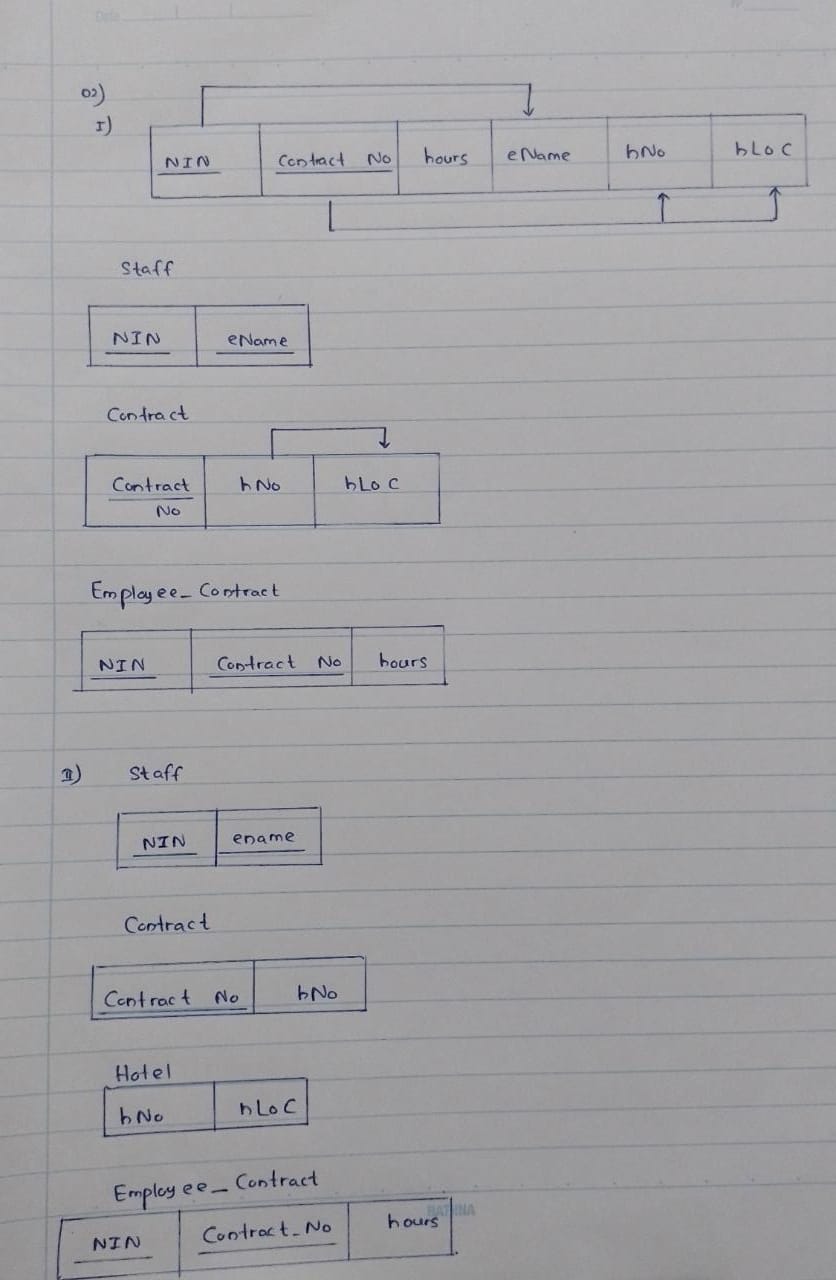 Date
02)
I)
NIN Contract No hours eName hNo hLoC
Staff
NIN eName
Contract
Contract hNo hLoC
No
Employee_ Contract
NIN Contract No hours
II) Staff
NIN ename
Contract
Contract No hNo
Hotel
hNo hLoC
Employee_ Contract
NIN Contract_No hours